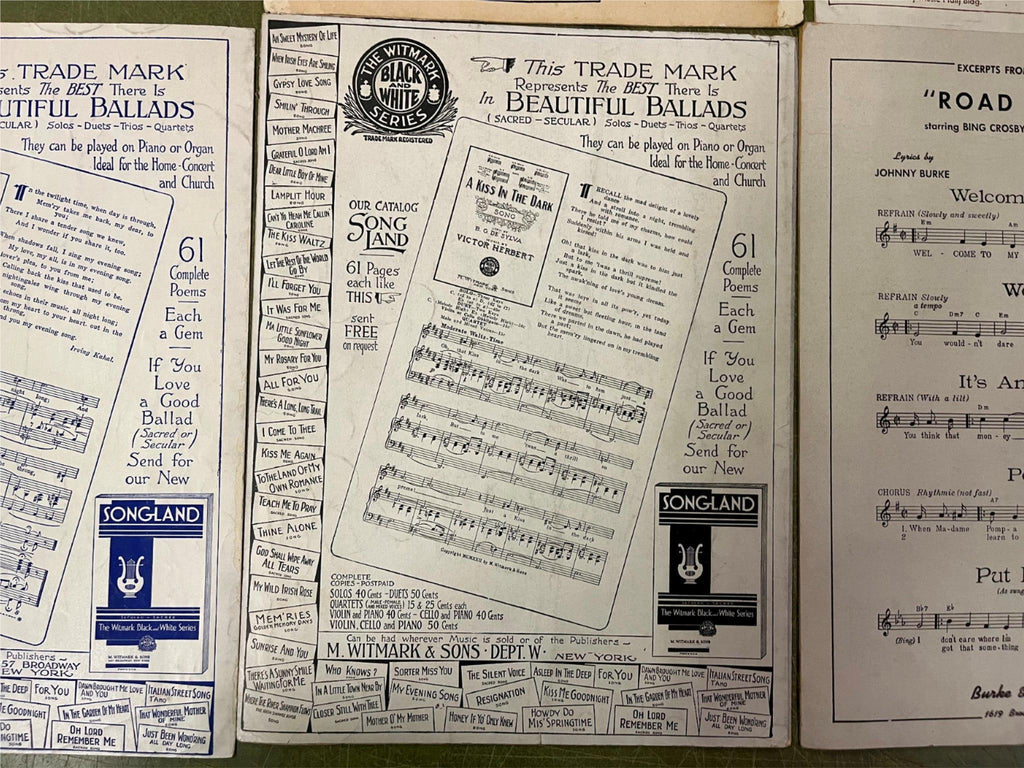 S TRADE MARK
ents The BEST There Is
UTIFUL BALLADS
CULAR) Solos - Duets - Trios - Quartets
They can be played on Piano or Organ
Ideal for the Home - Concert
and Church
In the twilight time, when day is through,
Mem'ry takes me back, my dear, to
you;
There I share a tender song we knew,
And I wonder if you share it, too.
When shadows fall, I sing my evening song;
My love, my all, is in my evening song.
Calling back the kiss that used to be.
echoes in their music, all night long;
my heart to your heart, out in the
throng,
and you my evening song.
Irving Kahal.
61
Complete
Poems
Each
a Gem
If You
Love
a Good
Ballad
(Sacred or)
Secular
Send for
our New
SONGLAND
The Witmark Black and White Series
M. WITMARK & SONS
Publishers
57 BROADWAY
EW YORK
THE DEEP
FOR YOU
DAWN BROUGHT ME LOVE AND YOU
ITALIAN STREET SONG
ME GOODNIGHT
IN THE GARDEN OF MY HEART
THAT WONDERFUL MOTHER OF MINE
NGTIME
OH LORD REMEMBER ME
JUST BEEN WOND'RING ALL DAY LONG
AH SWEET MYSTERY OF LIFE
WHEN IRISH EYES ARE SMILING
GYPSY LOVE SONG
SMILIN' THROUGH
MOTHER MACHREE
GRATEFUL O LORD AM I
DEAR LITTLE BOY OF MINE
LAMPLIT HOUR
CAN'T YO' HEAH ME CALLIN' CAROLINE
THE KISS WALTZ
LET THE REST OF THE WORLD GO BY
I'LL FORGET YOU
IT WAS FOR ME
MA LITTLE SUNFLOWER GOOD NIGHT
MY ROSARY FOR YOU
ALL FOR YOU
THERE'S A LONG, LONG TRAIL
I COME TO THEE
KISS ME AGAIN
TO THE LAND OF MY OWN ROMANCE
TEACH ME TO PRAY
THINE ALONE
GOD SHALL WIPE AWAY ALL TEARS
MY WILD IRISH ROSE
MEM'RIES
GOLDEN MEMORY DAYS
SUNRISE AND YOU
THE WITMARK
BLACK AND WHITE
SERIES
TRADE MARK REGISTERED
This TRADE MARK
Represents The BEST There Is
In BEAUTIFUL BALLADS
(SACRED - SECULAR) Solos - Duets - Trios - Quartets
They can be played on Piano or Organ
Ideal for the Home - Concert
and Church
OUR CATALOG
SONG LAND
61 Pages
each like
THIS
sent
FREE
on request
A KISS IN THE DARK
SONG
B. G. DE SYLVA
VICTOR HERBERT
I RECALL the mad delight of a lovely
dance
And a stroll into a night, trembling
with romance.
There he told me of my charms, how could
I resist?
Suddenly within his arms I was held and
kissed!
Oh! that kiss in the dark was to him just
a lark,
But to me 'twas a thrill supreme!
Just a kiss in the dark but it kindled the
spark,
The awak'ning of love's young dream.
Like a sweet but fleeting hour, in the land
of dreams,
There we parted in the dawn, he had played
his part;
But the mem'ry lingered on in my trembling
heart!
Moderate Waltz-Time
Oh, that kiss in the dark Was to him just
a lark, But to me 'twas a thrill su-
preme! Just a kiss in the dark
Copyright MCMXXII by M. Witmark & Sons
61
Complete
Poems
Each
a Gem
If You
Love
a Good
Ballad
(Sacred or)
Secular
Send for
our New
SONGLAND
The Witmark Black and White Series
M. WITMARK & SONS
COMPLETE
COPIES - POSTPAID
SOLOS 40 Cents - DUETS 50 Cents
QUARTETS (MALE - FEMALE (AND MIXED VOICES) 15 & 25 Cents each
VIOLIN and PIANO 40 Cents - CELLO and PIANO 40 Cents
VIOLIN, CELLO and PIANO 50 Cents
Can be had wherever Music is sold or of the Publishers -
M. WITMARK & SONS · DEPT. W · NEW YORK
THERE'S A SUNNY SMILE WAITING FOR ME
WHO KNOWS?
SORTER MISS YOU
THE SILENT VOICE
ASLEEP IN THE DEEP
FOR YOU
DAWN BROUGHT ME LOVE AND YOU
ITALIAN STREET SONG
IN A LITTLE TOWN NEAR BY
MY EVENING SONG
RESIGNATION
KISS ME GOODNIGHT
IN THE GARDEN OF MY HEART
THAT WONDERFUL MOTHER OF MINE
WHERE THE RIVER SHANNON FLOWS
CLOSER STILL WITH THEE
MOTHER O' MY MOTHER
HONEY IF YO' ONLY KNEW
HOWDY DO MIS' SPRINGTIME
OH LORD REMEMBER ME
JUST BEEN WOND'RING ALL DAY LONG
EXCERPTS FRO
"ROAD
starring BING CROSBY
Lyrics by
JOHNNY BURKE
Welcom
REFRAIN (Slowly and sweetly)
Em Am
WEL - COME TO MY
We
REFRAIN Slowly
a tempo
C Dm7 C Em
You would - n't dare
It's An
REFRAIN (With a lilt)
Dm
You think that mon - ey
Po
CHORUS Rhythmic (not fast)
A7
1. When Ma - dame Pomp - a
2 learn to
Put I
(As sung
Bb7 Eb
(Bing) I don't care where his
got that some - thing
Burke &
1619 Broa